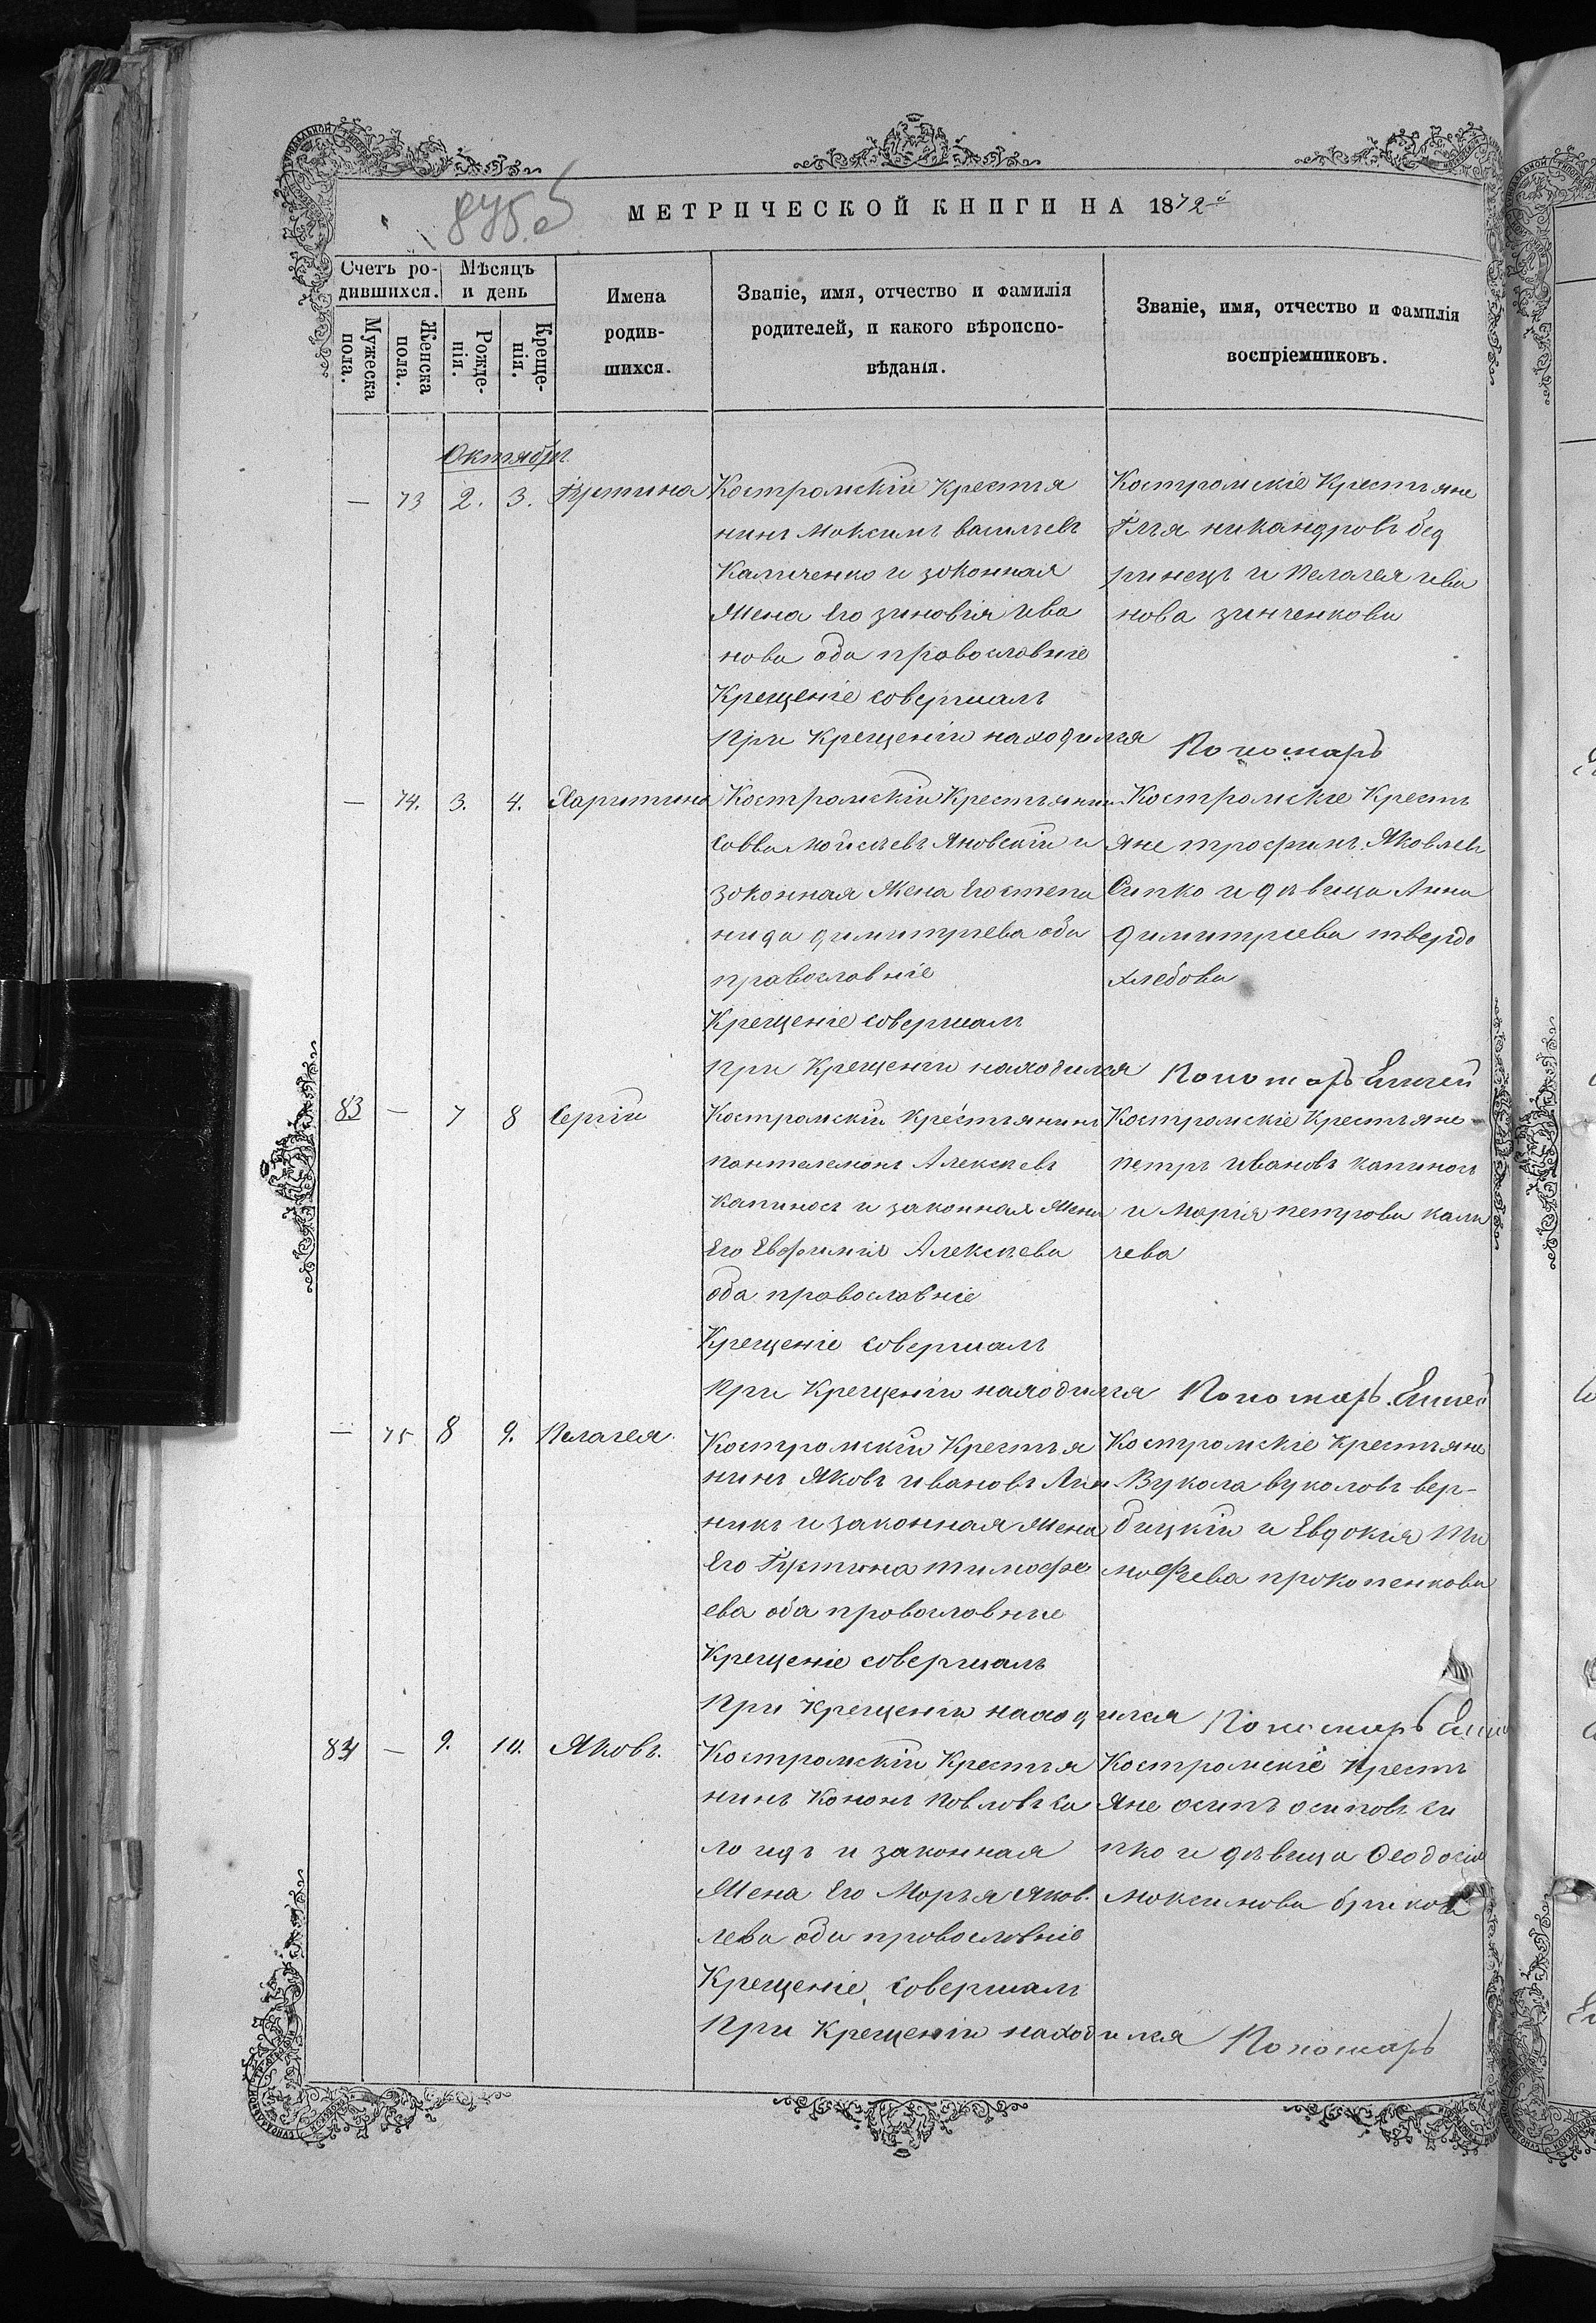 875об
МЕТРИЧЕСКОЙ КНИГИ НА 1872й
Счетъ ро-
дившихся.
Мѣсяцъ
и день
Мужеска
пола.
Женска
пола.
Рожде-
нія.
Креще-
нія.
Имена
родив-
шихся.
Званіе, имя, отчество и фамилія
родителей, и какого вѣроиспо-
вѣданія.
Званіе, имя, отчество и фамилія
воспріемниковъ.
Октября
— 73 2. 3. Іустина
Костромскій Крестья
нинъ Максимъ васильевъ
Каличенко и законная
Жена Его зиновія ива
нова оба православніе
Крещеніе совершалъ
При Крещеніи находился Пономарь
Костромскіе Крестьяне
Илья никандровъ бед
ринецъ и Пелагея ива
нова зинченкова
— 74. 3. 4. Харитина
Костромскій Крестьянин
Савва Моисеевъ Яновскій и
законная Жена Его степа
нида димитріева оба
православніе
Крещеніе совершалъ
При Крещеніи находился Пономарь
Костромскіе Крестъ
яне трофимъ Яковлев
Сипко и дѣвица Анна
димитріева твердо
хлебова
83 — 7 8 Сергій
Костромскій Крестьянинъ
пантелемонъ Алексѣевъ
капиносъ и законная Жена
Его Евфимія Алексѣева
оба православніе
Крещеніе совершалъ
При Крещеніи находился Пономарь
Костромскіе Крестьяне
петръ ивановъ капиносъ
и Марія петрова кали
чева
— 75 8 9. Пелагея
Костромскій Крестья
нинъ Яковъ ивановъ
никъ и законная Жена
Его Іустина тимофе
ева оба православніе
Крещеніе совершалъ
При Крещеніи находился Пономарь
Костромскіе Крестьяне
Вукола вуколовъ вер-
бицкій и Евдокія Ти
мофеева прокопенкова
84 — 9. 10. Яковъ.
Костромскій Крестья
нинъ Кононъ Павловъ ка
ло идъ и законная
Жена Его Марья яков.
лева оба православніе
Крещеніе совершалъ
При Крещеніи находился Пономарь
Костромскіе Крестъ
Яне осипъ осиповъ си
пко и дѣвица Ѳеодосія
максимова